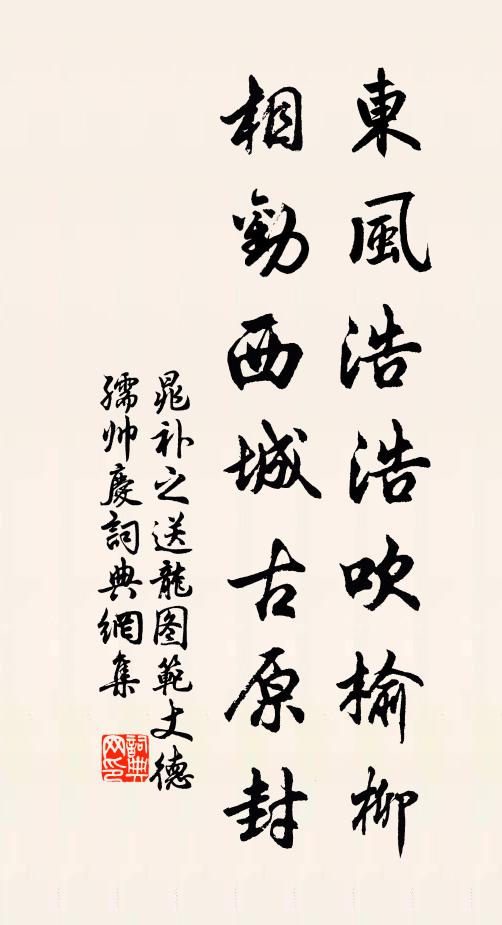 東風浩浩吹榆柳
相勸西城古原封
晁补之送龍图範丈德
孺帅慶詞典網集
詞典
网印